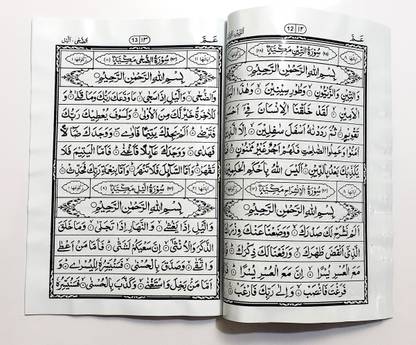 عَمَّ
12 ١٢
سُوْرَةُ التِّيْنِ مَكِّيَّةٌ
بِسْمِ اللهِ الرَّحْمٰنِ الرَّحِيْمِ
وَالتِّيْنِ وَالزَّيْتُوْنِ وَطُوْرِ سِيْنِيْنَ وَهٰذَا الْبَلَدِ
الْاَمِيْنِ لَقَدْ خَلَقْنَا الْاِنْسَانَ فِيْٓ اَحْسَنِ
تَقْوِيْمٍ ثُمَّ رَدَدْنٰهُ اَسْفَلَ سٰفِلِيْنَ اِلَّا الَّذِيْنَ
اٰمَنُوْا وَعَمِلُوا الصّٰلِحٰتِ فَلَهُمْ اَجْرٌ غَيْرُ مَمْنُوْنٍ فَمَا
يُكَذِّبُكَ بَعْدُ بِالدِّيْنِ اَلَيْسَ اللهُ بِاَحْكَمِ الْحٰكِمِيْنَ
سُوْرَةُ الْاِنْشِرَاحِ مَكِّيَّةٌ
بِسْمِ اللهِ الرَّحْمٰنِ الرَّحِيْمِ
اَلَمْ نَشْرَحْ لَكَ صَدْرَكَ وَوَضَعْنَا عَنْكَ وِزْرَكَ
الَّذِيْٓ اَنْقَضَ ظَهْرَكَ وَرَفَعْنَا لَكَ ذِكْرَكَ فَاِنَّ
مَعَ الْعُسْرِ يُسْرًا اِنَّ مَعَ الْعُسْرِ يُسْرًا فَاِذَا
فَرَغْتَ فَانْصَبْ وَاِلٰى رَبِّكَ فَارْغَبْ
عَمَّ
13 ١٣
الضحى، اليل
سُوْرَةُ الضُّحٰى مَكِّيَّةٌ
بِسْمِ اللهِ الرَّحْمٰنِ الرَّحِيْمِ
وَالضُّحٰى وَالَّيْلِ اِذَا سَجٰى مَا وَدَّعَكَ رَبُّكَ وَمَا قَلٰى
وَلَلْاٰخِرَةُ خَيْرٌ لَّكَ مِنَ الْاُوْلٰى وَلَسَوْفَ يُعْطِيْكَ رَبُّكَ
فَتَرْضٰى اَلَمْ يَجِدْكَ يَتِيْمًا فَاٰوٰى وَوَجَدَكَ ضَآلًّا
فَهَدٰى وَوَجَدَكَ عَآئِلًا فَاَغْنٰى فَاَمَّا الْيَتِيْمَ فَلَا
تَقْهَرْ وَاَمَّا السَّآئِلَ فَلَا تَنْهَرْ وَاَمَّا بِنِعْمَةِ رَبِّكَ فَحَدِّثْ
سُوْرَةُ الَّيْلِ مَكِّيَّةٌ
بِسْمِ اللهِ الرَّحْمٰنِ الرَّحِيْمِ
وَالَّيْلِ اِذَا يَغْشٰى وَالنَّهَارِ اِذَا تَجَلّٰى وَمَا خَلَقَ
الذَّكَرَ وَالْاُنْثٰٓى اِنَّ سَعْيَكُمْ لَشَتّٰى فَاَمَّا مَنْ اَعْطٰى
وَاتَّقٰى وَصَدَّقَ بِالْحُسْنٰى فَسَنُيَسِّرُهٗ لِلْيُسْرٰى وَ
اَمَّا مَنْ بَخِلَ وَاسْتَغْنٰى وَكَذَّبَ بِالْحُسْنٰى فَسَنُيَسِّرُهٗ